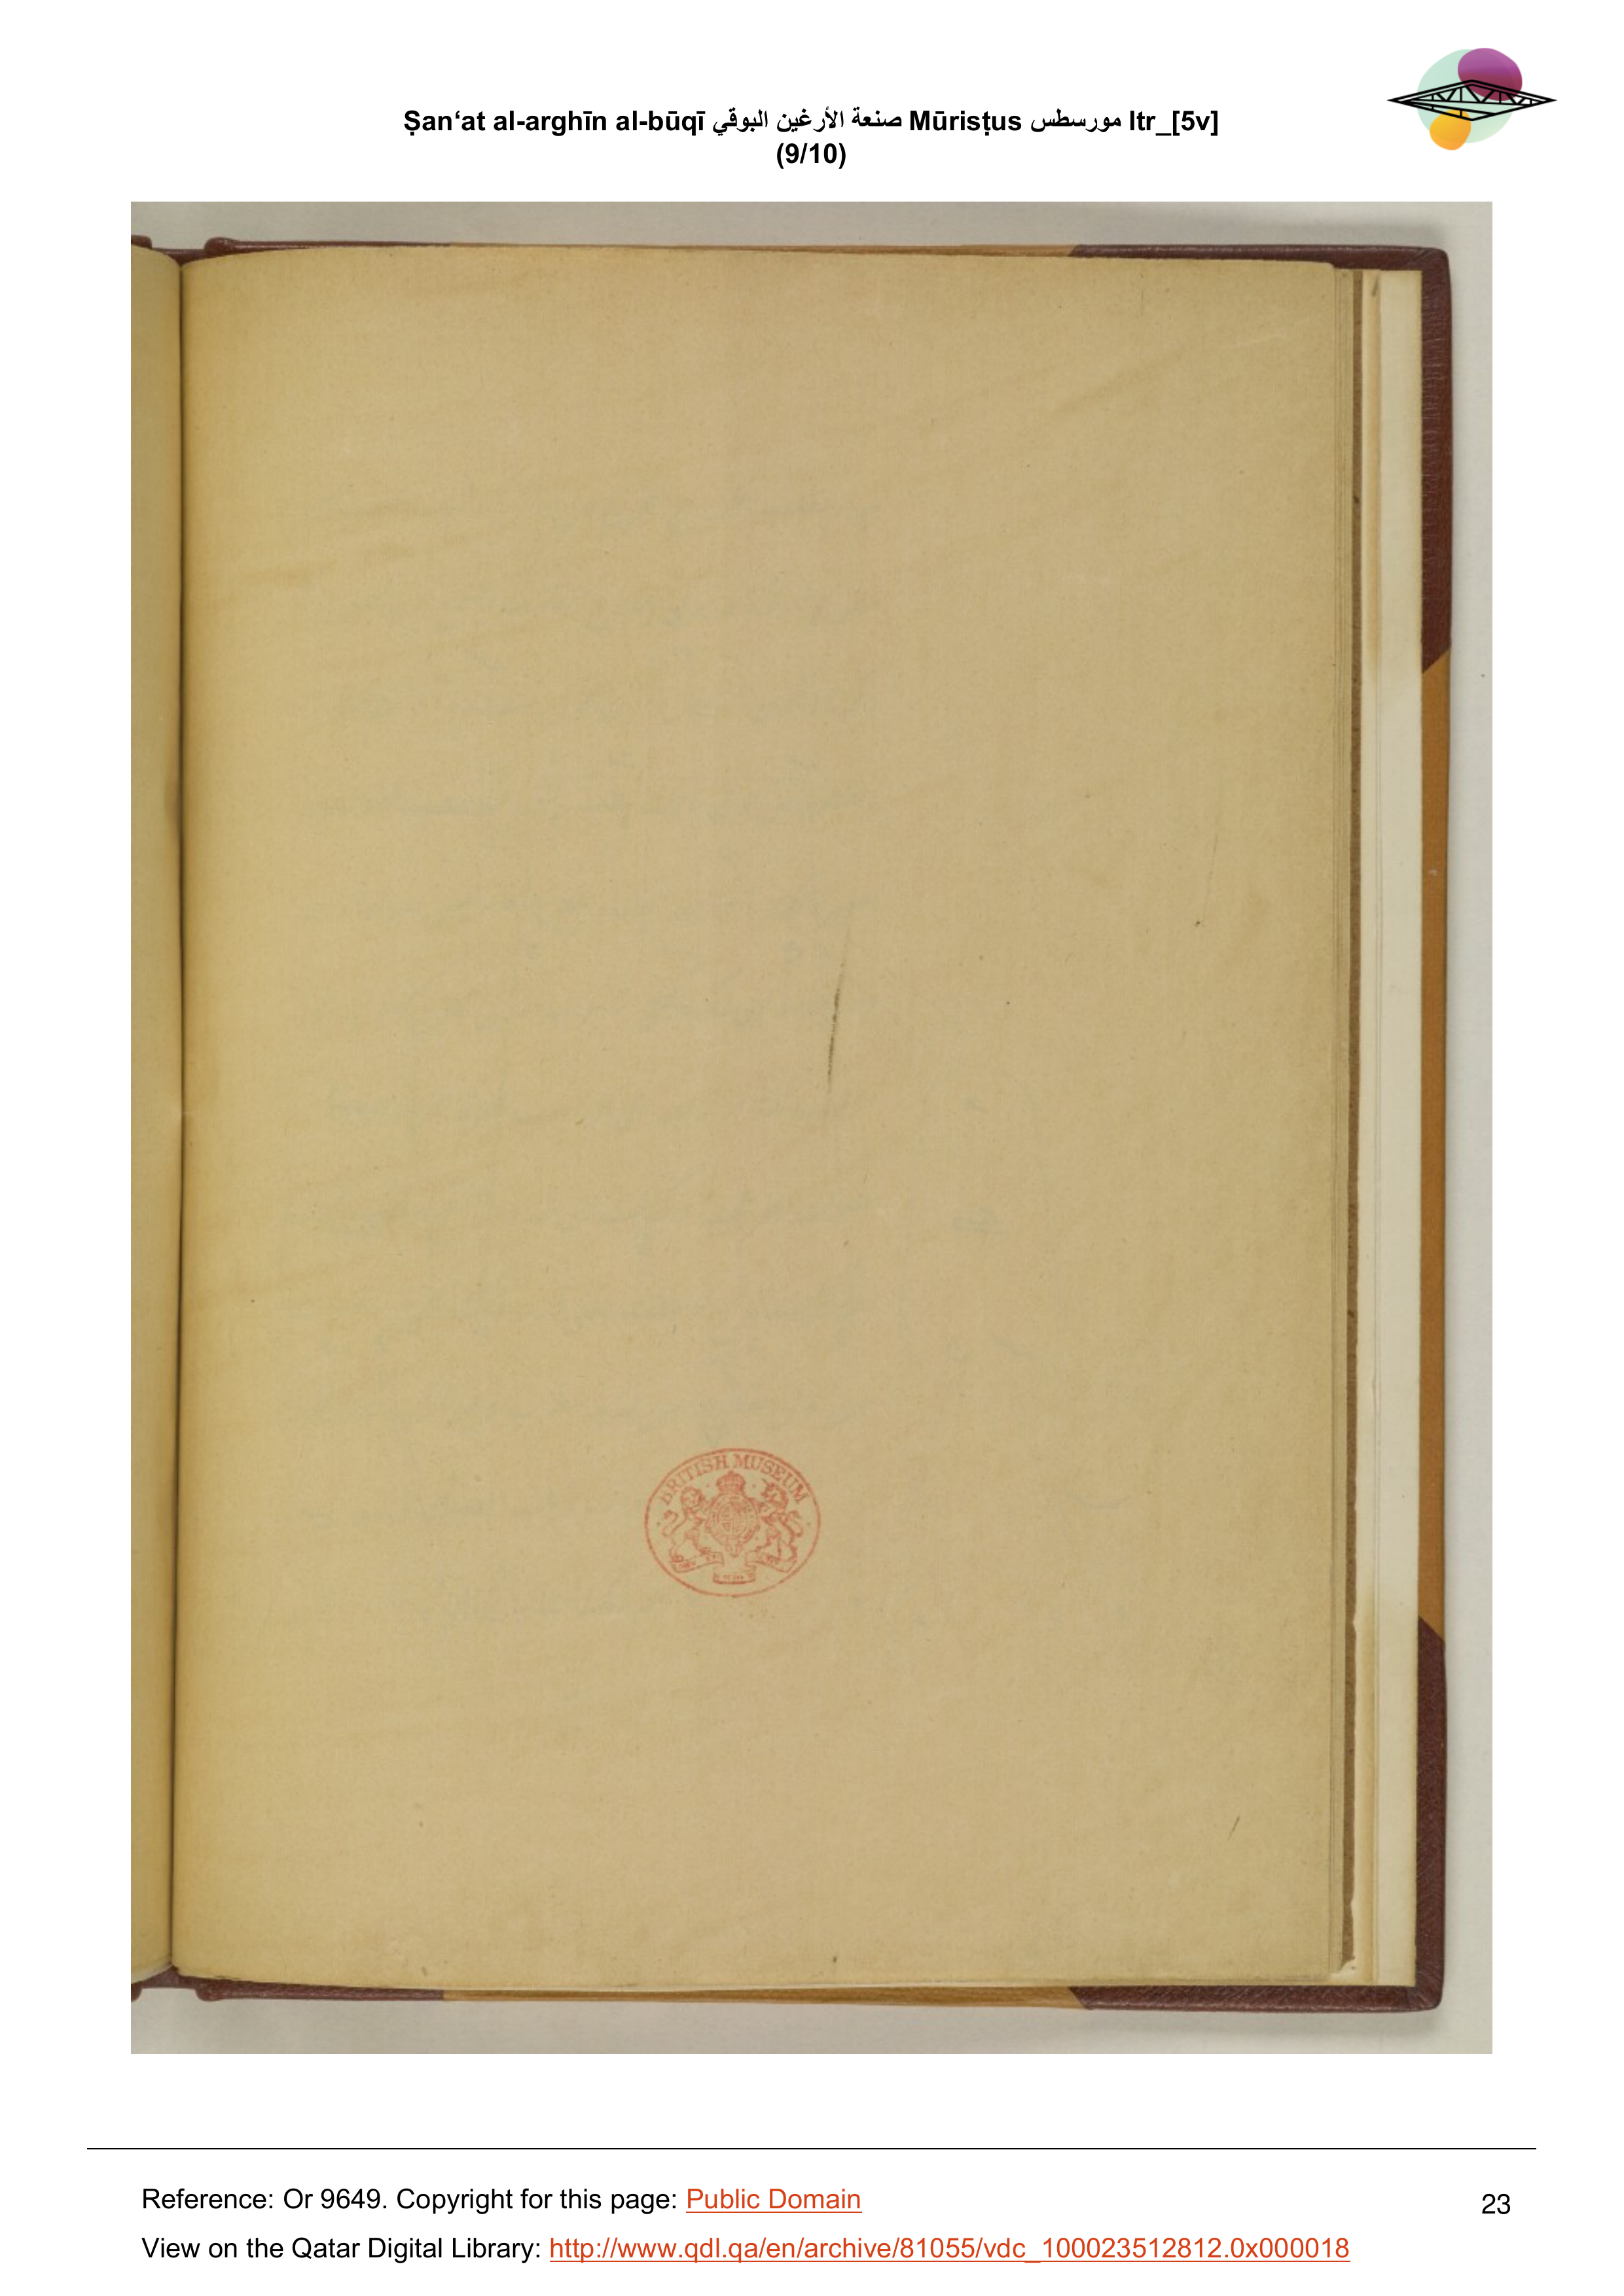 Ṣan‘at al-arghīn al-būqī صنعة الأرغين البوقي Mūrisṭus مورسطس ltr_[5v]
(9/10)
BRITISH MUSEUM
Reference: Or 9649. Copyright for this page: Public Domain
23
View on the Qatar Digital Library: http://www.qdl.qa/en/archive/81055/vdc_100023512812.0x000018